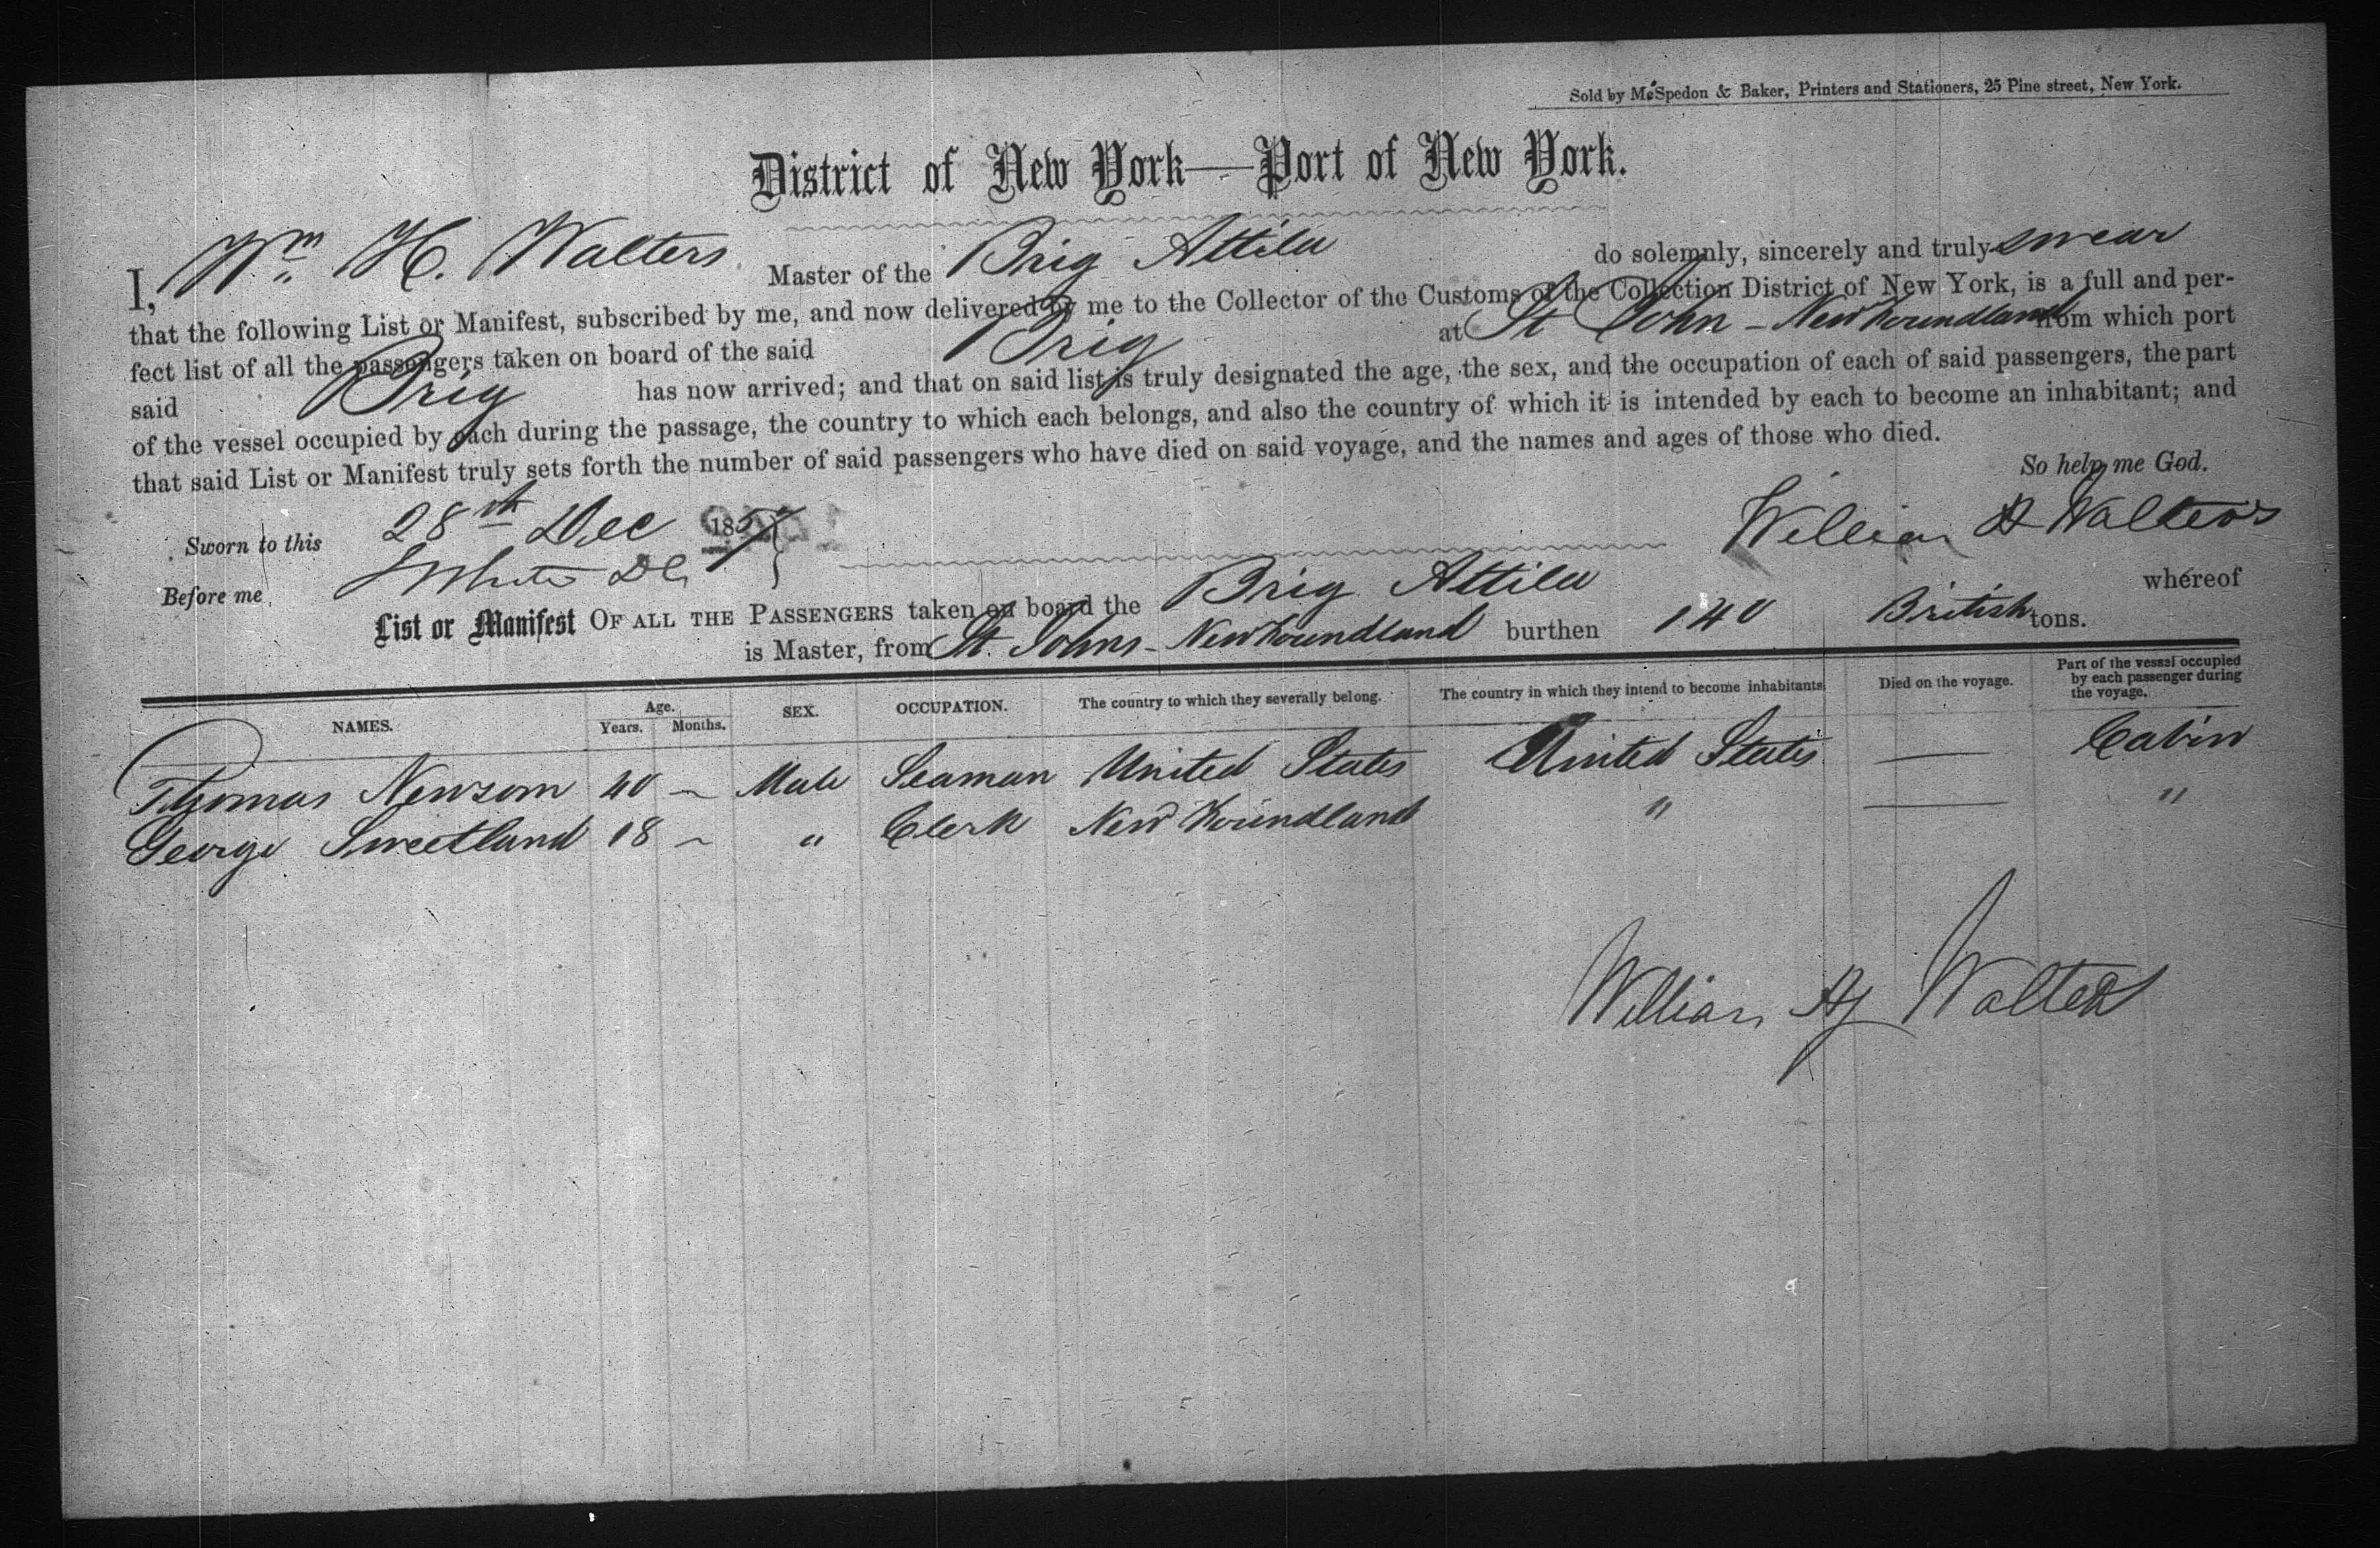 Sold by McSpedon & Baker, Printers and Stationers, 25 Pine street, New York.
District of New York—Port of New York.
I, Wm H. Walters Master of the Brig Attila do solemnly, sincerely and truly swear
that the following List or Manifest, subscribed by me, and now delivered by me to the Collector of the Customs of the Collection District of New York, is a full and per-
fect list of all the passengers taken on board of the said Brig at St John - Newfoundland from which port
said Brig has now arrived; and that on said list is truly designated the age, the sex, and the occupation of each of said passengers, the part
of the vessel occupied by each during the passage, the country to which each belongs, and also the country of which it is intended by each to become an inhabitant; and
that said List or Manifest truly sets forth the number of said passengers who have died on said voyage, and the names and ages of those who died.
So help me God.
Sworn to this 28th Dec 1857 William H Walters
Before me
List or Manifest OF ALL THE PASSENGERS taken on board the Brig Attila whereof
is Master, from St. Johns - Newfoundland burthen 140 British tons.
NAMES. Age. Years. Months. SEX. OCCUPATION. The country to which they severally belong. The country in which they intend to become inhabitants. Died on the voyage. Part of the vessel occupied by each passenger during the voyage.
Thomas Newsom 40 – Male Seaman United States United States — Cabin
George Sweetland 18 – " Clerk Newfoundland " — "
William H Walters